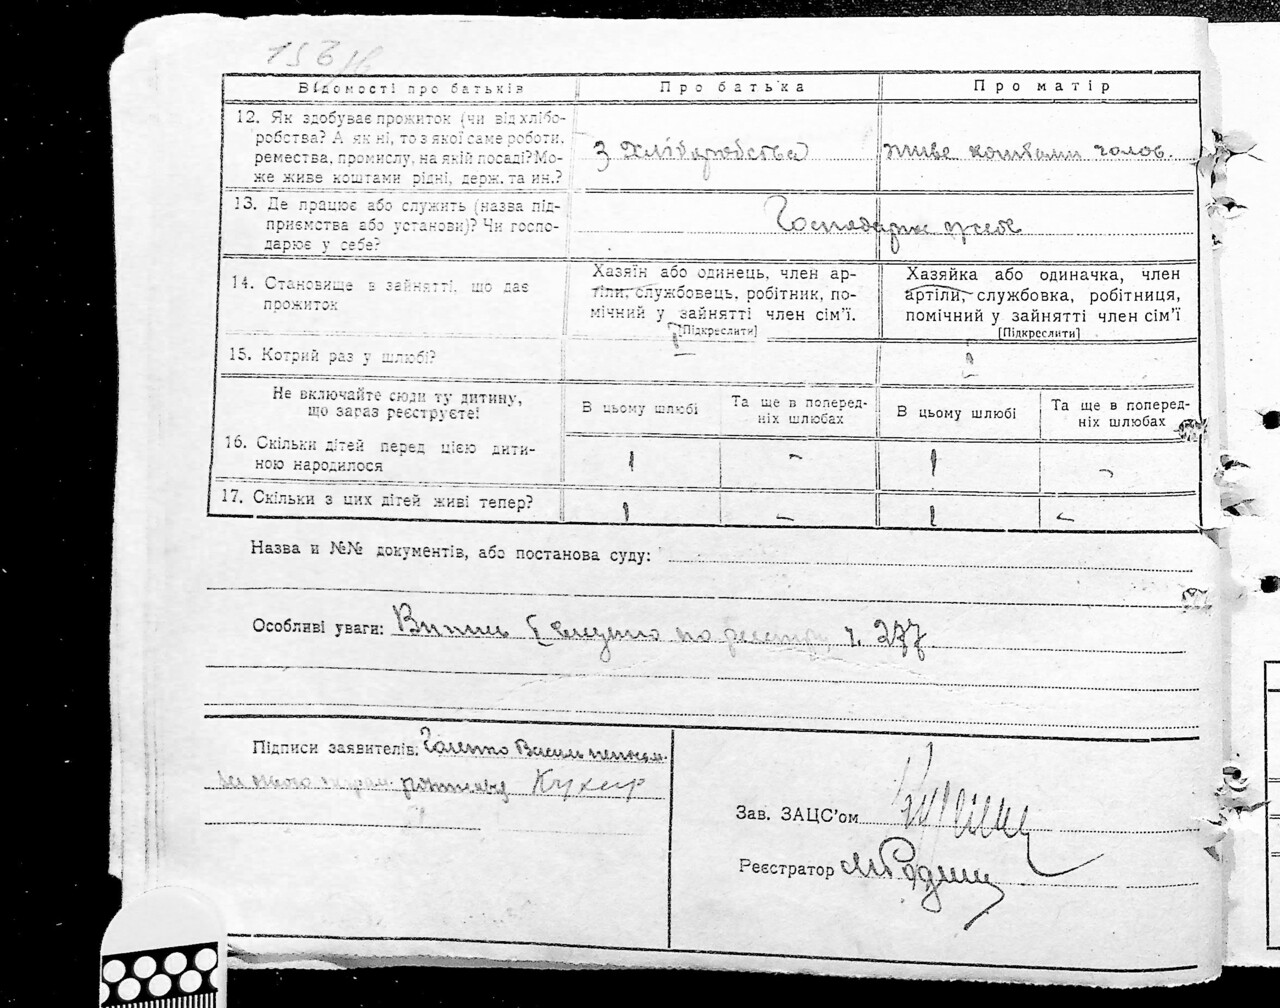 Відомості про батьків
Про батька
Про матір
12. Як здобуває прожиток (чи від хлібо-
робства? А як ні, то з якої саме роботи,
ремества, промислу, на якій посаді? Мо-
же живе коштами рідні, держ. та ин.?
З хліборобства
живе коштами чолов.
13. Де працює або служить (назва під-
приємства або установи)? Чи госпо-
дарює у себе?
14. Становище в зайнятті, що дає
прожиток
Хазяїн або одинець, член ар-
тіли, службовець, робітник, по-
мічний у зайнятті член сім'ї.
[Підкреслити]
Хазяйка або одиначка, член
артіли, службовка, робітниця,
помічний у зайнятті член сім'ї
[Підкреслити]
15. Котрий раз у шлюбі?
Не включайте сюди ту дитину,
що зараз реєструєте!
В цьому шлюбі
Та ще в поперед-
ніх шлюбах
В цьому шлюбі
Та ще в поперед-
ніх шлюбах
16. Скільки дітей перед цією дити-
ною народилося
1 - 1 -
17. Скільки з цих дітей живі тепер?
1 - 1 -
Назва и №№ документів, або постанова суду:
Особливі уваги: Випись по реєстру ч. 277
Підписи заявителів: Василь
Кухар
Зав. ЗАЦС'ом
Реєстратор